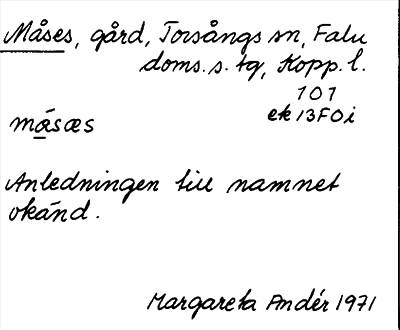 Måses, gård, Torsångs sn, Falu
doms.s. tg, Kopp. l.
101
ek 13F0i
må̀sæs
Anledningen till namnet
okänd.
Margareta Andér 1971